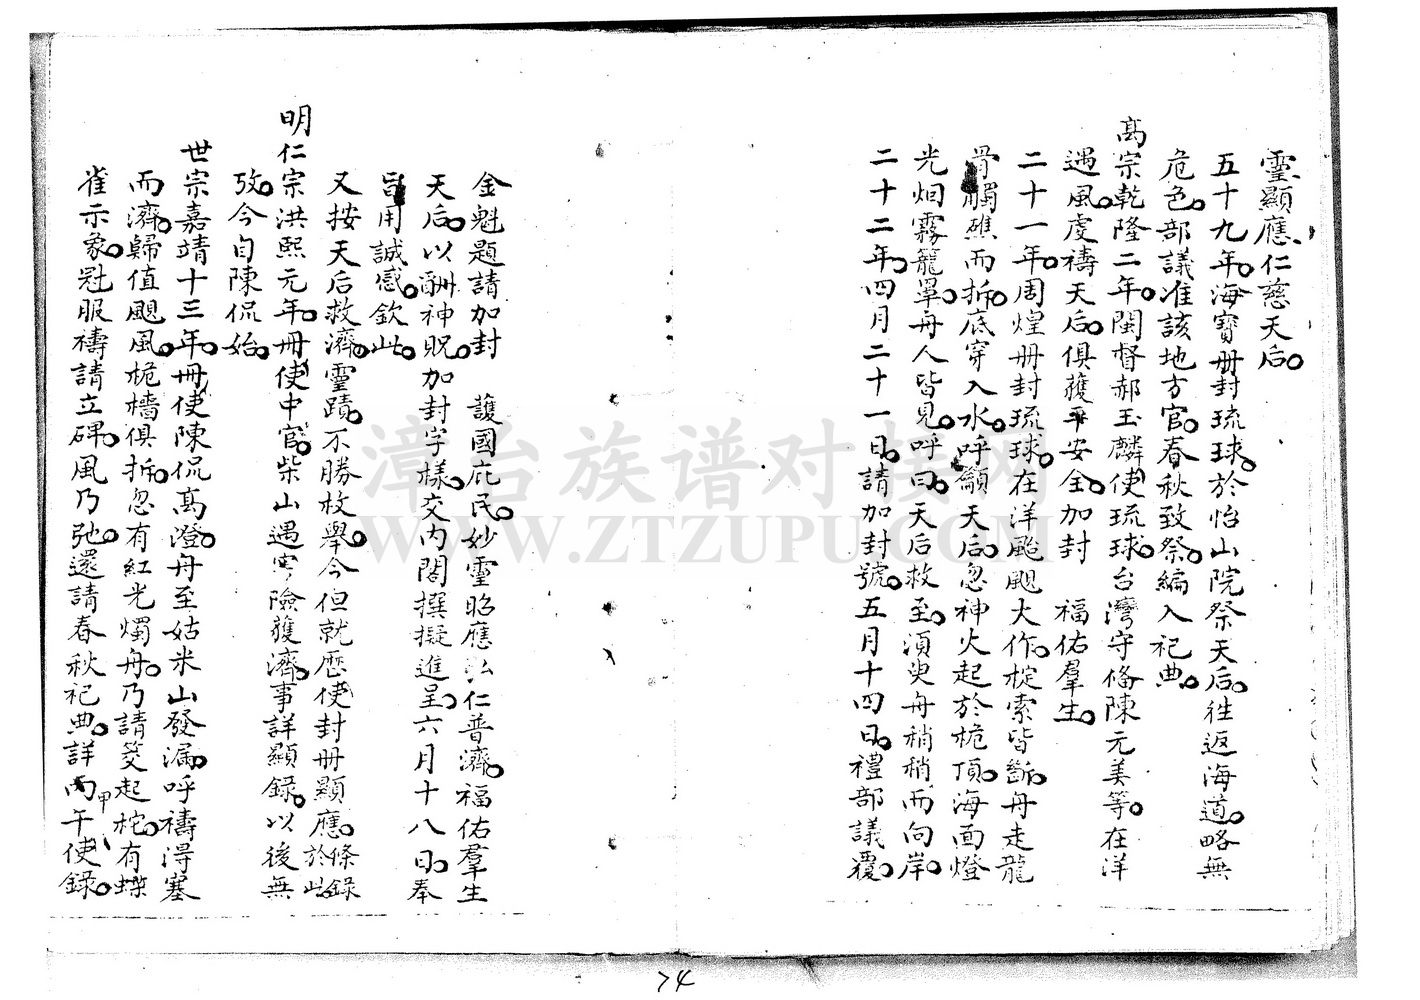 靈顯應仁慈天后。
五十九年。海寶册封琉球。於怡山院祭天后。往返海道。略無
危色。部議准該地方官。春秋致祭。編入祀典。
高宗乾隆二年。閩督郝玉麟使琉球。台灣守俻陳元美等。在洋
遇風虔禱天后。俱獲平安全。加封　福佑羣生。
二十一年。周煌册封琉球。在洋颱颶大作。椗索皆斷。舟走龍
骨觸礁而拆。底穿入水。呼籲天后。忽神火起於桅頂。海面燈
光烟霧籠罩。舟人皆見。呼曰。天后救至。須臾舟稍稍而向岸。
二十二年。四月二十一日。請加封號。五月十四日。禮部議覆。
金魁題請加封　護國庇民。妙靈昭應弘仁普濟。福佑羣生
天后。以酬神貺。加封字樣。交内閣撰擬進呈。六月十八日。奉
旨用誠感。欽此。
又按天后救濟靈蹟。不勝枚舉。今但就歷使封册顯應。條錄於此
明仁宗洪熙元年。册使中官。柴山遇險獲濟。事詳顯錄。以後無
攷。今自陳侃始。
世宗嘉靖十三年。册使陳侃高澄。舟至姑米山發漏。呼禱得塞
而濟。歸值颶風。桅檣俱拆。忽有紅光燭舟。乃請筊起柁。有蝶
雀示象。冠服禱請立碑。風乃弛。還請春秋祀典。詳丙甲干使錄。
漳台族谱对接网
WWW.ZTZUPU.COM
74